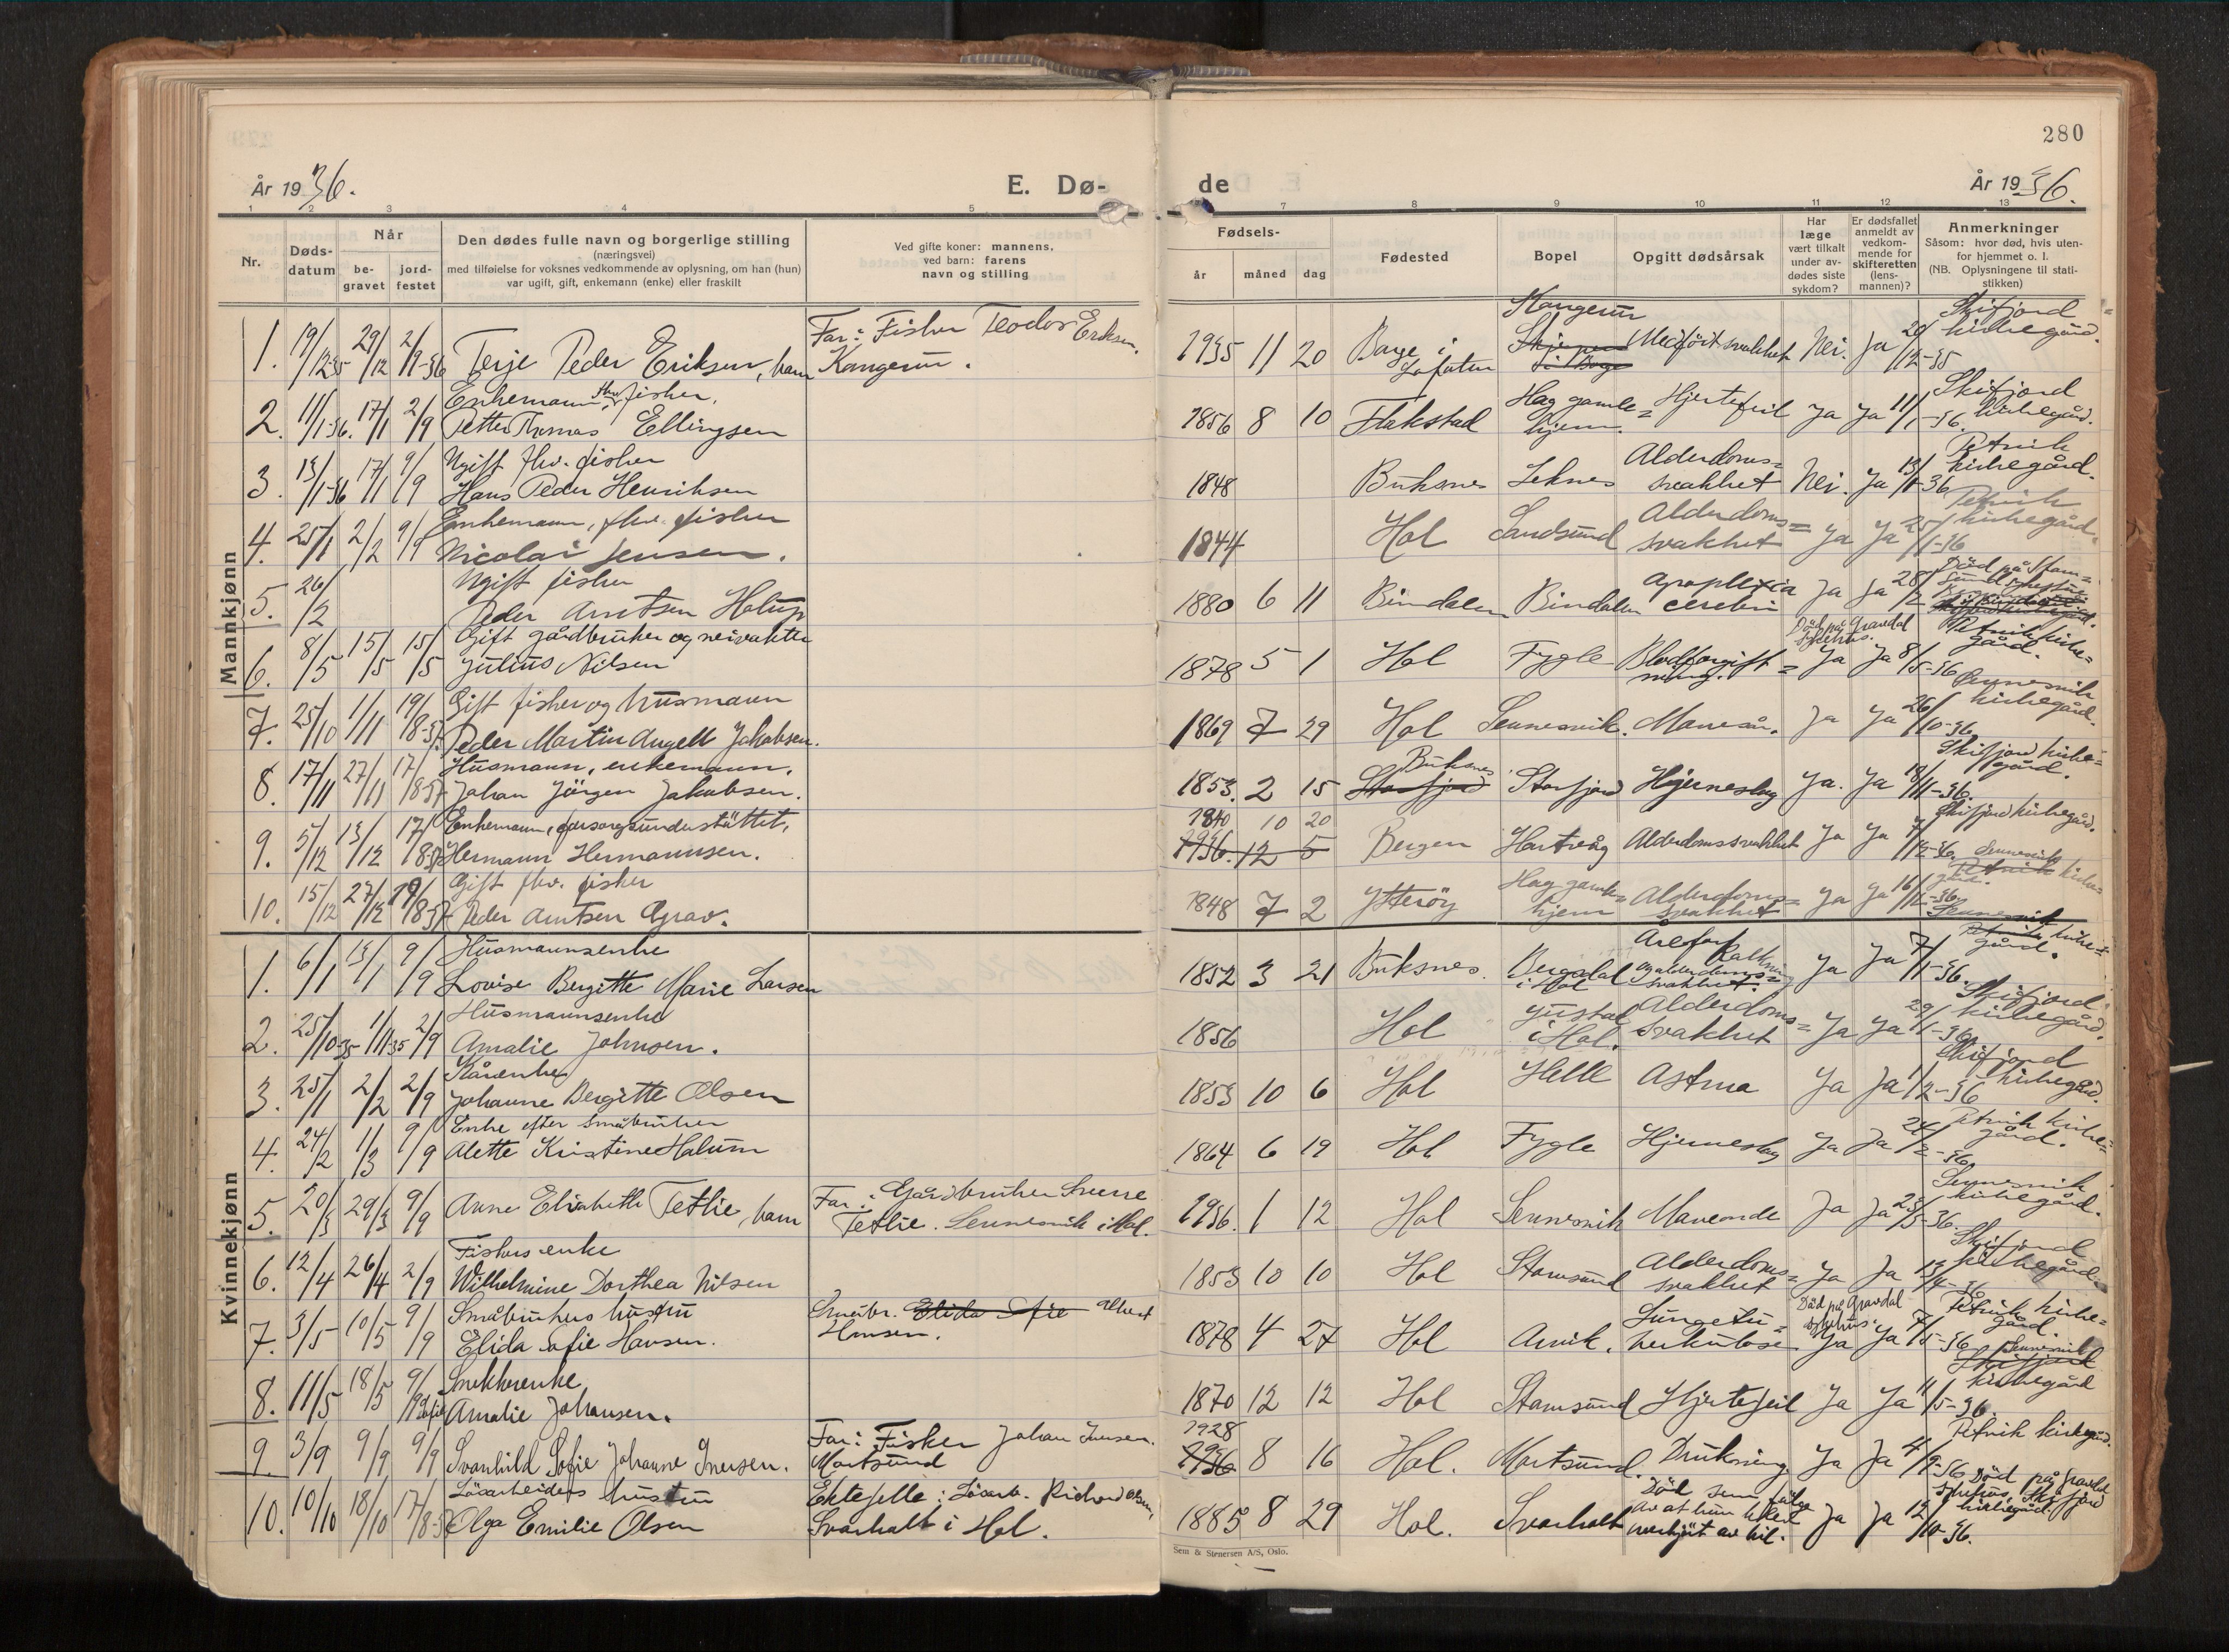 280
År 1936.
E. Dø-
de
År 1936.
1 2 3 4 5 7 8 9 10 11 12 13
Nr.
Døds-
datum
Når
be-
gravet
jord-
festet
Den dødes fulle navn og borgerlige stilling
(næringsvei)
med tilføielse for voksnes vedkommende av oplysning, om han (hun)
var ugift, gift, enkemann (enke) eller fraskilt
Ved gifte koner: mannens,
ved barn: farens
navn og stilling
Fødsels-
år
måned
dag
Fødested
Bopel
Opgitt dødsårsak
Har
læge
vært tilkalt
under av-
dødes siste
sykdom?
Er dødsfallet
anmeldt av
vedkom-
mende for
skifteretten
(lens-
mannen)?
Anmerkninger
Såsom: hvor død, hvis uten-
for hjemmet o. l.
(NB. Oplysningene til stati-
stikken)
Mannkjønn
1. 19/12 35 29/12 2/9-36 Terje Peder Eriksen, barn
Far: Fisker Teodor Eriksen,
Kangerur.
1935 11 20 Borge i
Lofoten
Kangerur
Medfört svakhet Nei. Ja 20/12-35
Skifjord
kirkegård.
2. 11/1-36. 17/1 2/9 Enkemann, fhv. fisker.
Petter Thomas Ellingsen
1856 8 10 Flakstad Hag gamle=
hjem. Hjertefeil Ja Ja 11/1-36.
Skifjord
kirkegård.
3. 13/1-36 17/1 9/9 Ugift fhv. fisher
Hans Peder Henriksen
1848 Buksnes Leknes Alderdoms=
svakhet Nei. Ja 13/1-36
Petvik
kirkegård.
4. 25/1 2/2 9/9 Enkemann, fhv. fisker
Nicolai Jensen.
1844 Hol Sandsund Alderdoms=
svakhet Ja Ja 25/1-36
Petvik
kirkegård.
5. 26/2 Ugift fisker
Peder Arntsen Holup
1880 6 11 Bindalen Bindalen Apoplexia
cerebri Ja Ja 28/2
Död på Stam=
sund
6. 8/5 15/5 15/5 Gift gårdbruker og veivokter
Julius Nilsen
1878 5 1 Hol Fygle Blodforgift=
ning. Död på Gravdal
sykehus.
Ja Ja 8/5-36
Petvik kirke=
gård.
7. 25/10 1/11 19/8-37. Gift fisker og husmann
Peder Martin Angell Jakobsen.
1869 7 29 Hol Sennesvik. Mavesår. Ja Ja 26/10-36
Sennesvik
kirkegård.
8. 17/11 27/11 17/8-37 Husmann, enkemann.
Johan Jörgen Jakobsen.
1853. 2 15 Buksnes
Storfjord Storfjord Hjerneslag Ja. Ja 18/11-36.
Skifjord kirke=
gård.
9. 5/12 13/12 17/8-37 Enkemann, forsorgsunderstöttet,
Hermann Hermannsen.
1840 10 20
1936. 12 5 Bergen Hartvåg Alderdomssvakhet Ja Ja 7/12-36.
Skifjord kirkegård.
10. 15/12 27/12 19/8-37 Gift fhv. fisker
Peder Arntsen Grav.
1848 7 2 Ytteröy Hag gamle=
hjem Alderdoms=
svakhet Ja Ja 16/12-36
Sennesvik
Petvik kirke=
gård.
Kvinnekjønn
1. 6/1 13/1 9/9 Husmannsenke
Lovise Bergitte Marie Larsen
1852 3 21 Buksnes. Bergsdal
i Hol Åreforkalkning
og alderdoms=
svakhet. Ja Ja 7/1-36.
Sennesvik
Petvik kirke=
gård.
2. 25/10-35 1/11 35 2/9 Husmannsenke
Amalie Johnsen.
1856 Hol Justad
i Hol. Alderdoms=
svakhet Ja Ja 29/1-36
Skifjord
kirkegård.
3. 25/1 2/2 2/9 Kårenke
Johanne Bergitte Olsen
1853 10 6 Hol Helle Astma Ja Ja 1/2-36
Skifjord
kirkegård.
4. 24/2 1/3 9/9 Enke efter småbruker
Alette Kristine Halum
1864 6 19 Hol Fygle Hjerneslag Ja Ja 24/2-36
Petvik kirke=
gård.
5. 20/3 29/3 9/9 Anne Elisabeth Tetlie, barn
Far: Gårdbruker Sverre
Tetlie. Sennesvik i Hol.
1936. 1 12 Hol Sennesvik Maveonde Ja Ja 23/3-36.
Sennesvik
kirkegård.
6. 12/4 26/4 2/9 Fiskersenke
Wilhelmine Dorthea Nilsen
1853 10 10 Hol Stamsund Alderdoms=
svakhet Ja Ja 13/4-36
Skifjord
kirkegård.
7. 3/5 10/5 9/9 Småbrukers hustru
Elida Sofie Hansen.
Småbr. Elida Sofie Albert
Hansen.
1878 4 27 Hol Arvik. Lungetu=
berkulose Död på Gravdal
sykehus.
Ja Ja 7/5-36
Petvik kirke=
gård.
8. 11/5 18/5 9/9 Snekkerenke
Amalie Johansen.
1870 12 12 Hol Stamsund Hjertefeil Ja Ja 11/5-36.
Sennesvik
Skifjord
kirkegård
9. 3/9 9/9 9/9 Svanhild Sofie Johanne Iversen.
Far: Fisker Johan Iversen.
Mortsund
1928
1936 8 16 Hol. Mortsund. Drukning Ja Ja 4/9-36
Petvik kirkegård.
10. 10/10 18/10 17/8-37 Lösarbeiders hustru
Olga Emilie Olsen
Ektefelle: Lösarb. Richard Olsen,
Svarholt i Hol.
1885 8 29 Hol. Svarholt Död som fölge
av at hun blev
overkjört av bil. Ja Ja 12/10-36.
Död på Gravdal
sykehus, Skifjord
kirkegård.
Sem & Stenersen A/S, Oslo.